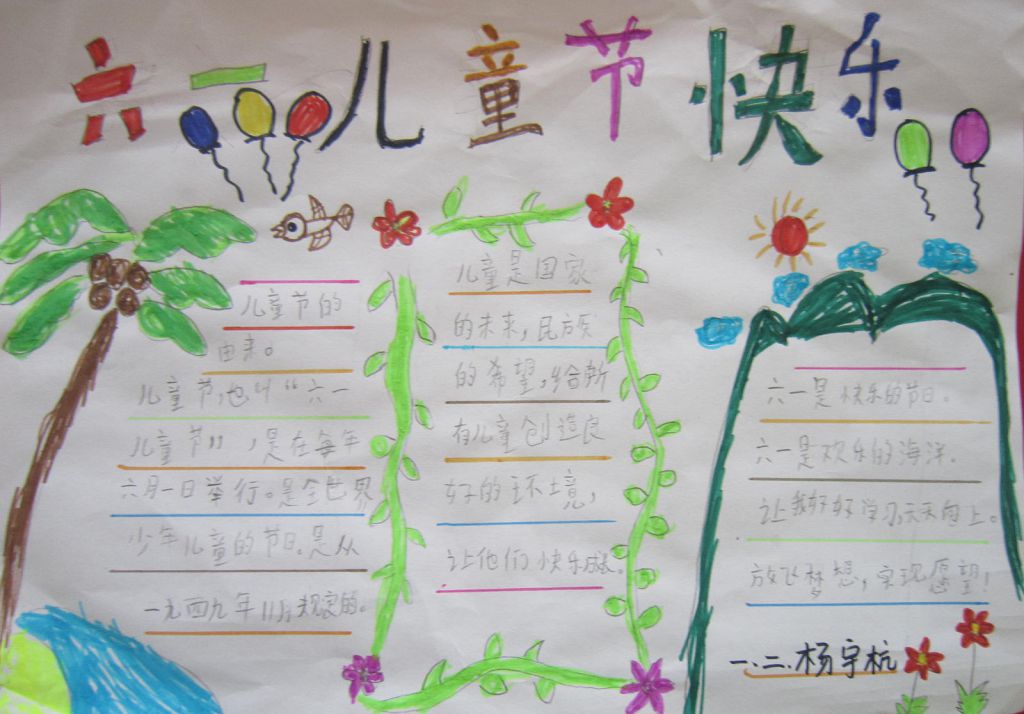 六一儿童节快乐
儿童节的
由来。
儿童节,也叫“六一
儿童节”,是在每年
六月一日举行。是全世界
少年儿童的节日。是从
一九四九年11月规定的。
儿童是国家
的未来,民族
的希望,给所
有儿童创造良
好的环境,
让他们快乐成长。
六一是快乐的节日。
六一是欢乐的海洋。
让我好好学习,天天向上。
放飞梦想,实现愿望!
一.二.杨宇杭